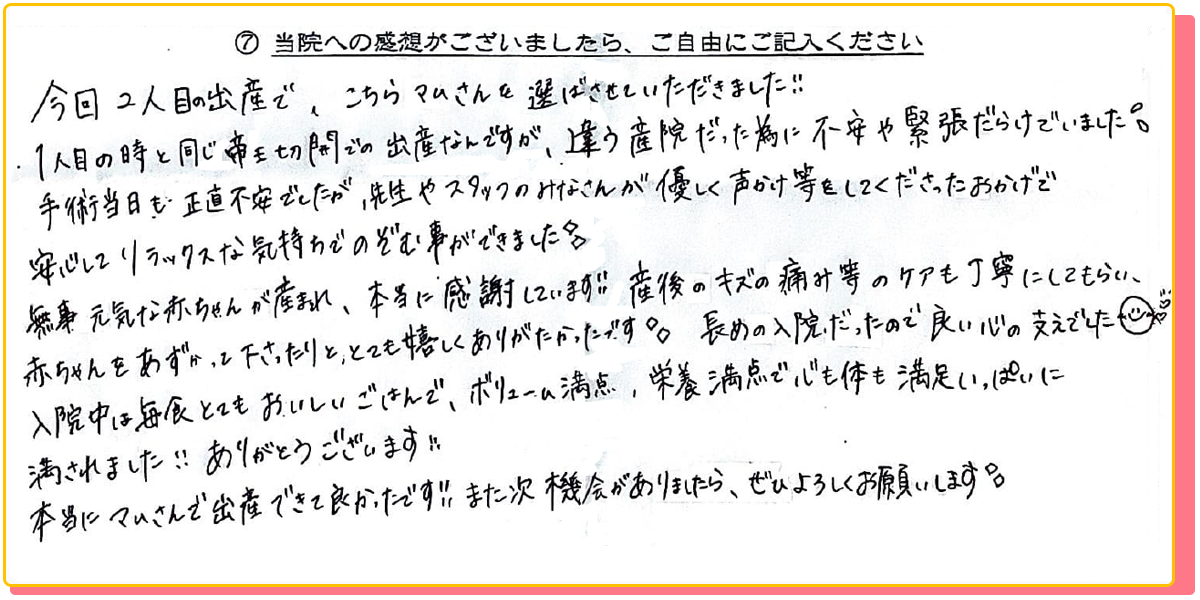 ⑦ 当院への感想がございましたら、ご自由にご記入ください
今回 2人目の出産で、こちらマムさんを選ばさせていただきました!!
1人目の時と同じ帝王切開での出産なんですが、違う産院だった為に不安や緊張だらけでいました。
手術当日も正直不安でしたが、先生やスタッフのみなさんが優しく声かけ等をしてくださったおかげで
安心してリラックスな気持ちでのぞむ事ができました。
無事元気な赤ちゃんが産まれ、本当に感謝しています!! 産後のキズの痛み等のケアも丁寧にしてもらい、
赤ちゃんをあずかって下さったりと、とても嬉しくありがたかったです。長めの入院だったので良い心の支えでした
入院中は毎食とてもおいしいごはんで、ボリューム満点、栄養満点で心も体も満足いっぱいに
満されました!! ありがとうございます!!
本当にマムさんで出産できて良かったです!! また次機会がありましたら、ぜひよろしくお願いします。